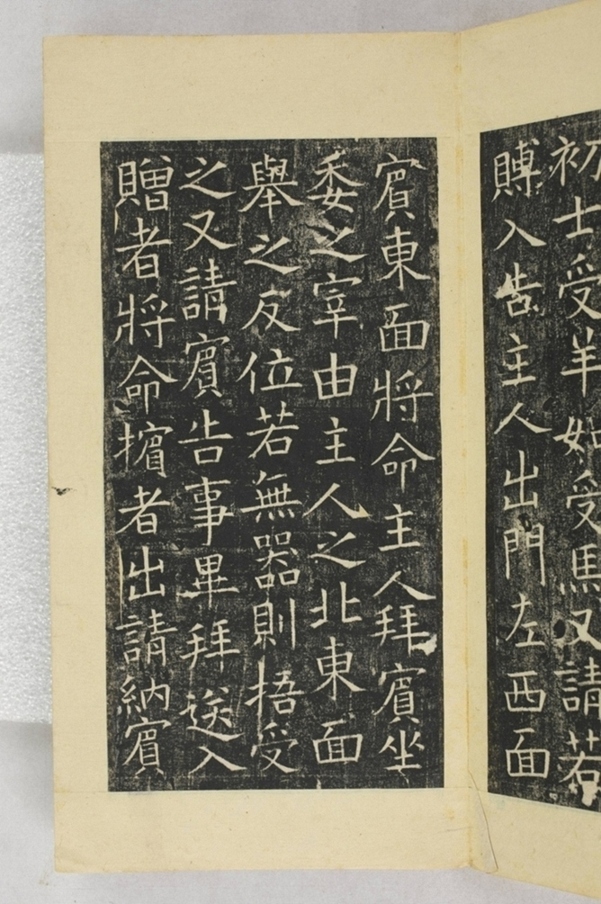 初士受羊如受馬又請若
賻入告主人出門左西面
賓東面將命主人拜賓坐
委之宰由主人之北東面
舉之反位若無器則捂受
之又請賓告事畢拜送入
贈者將命擯者出請納賓